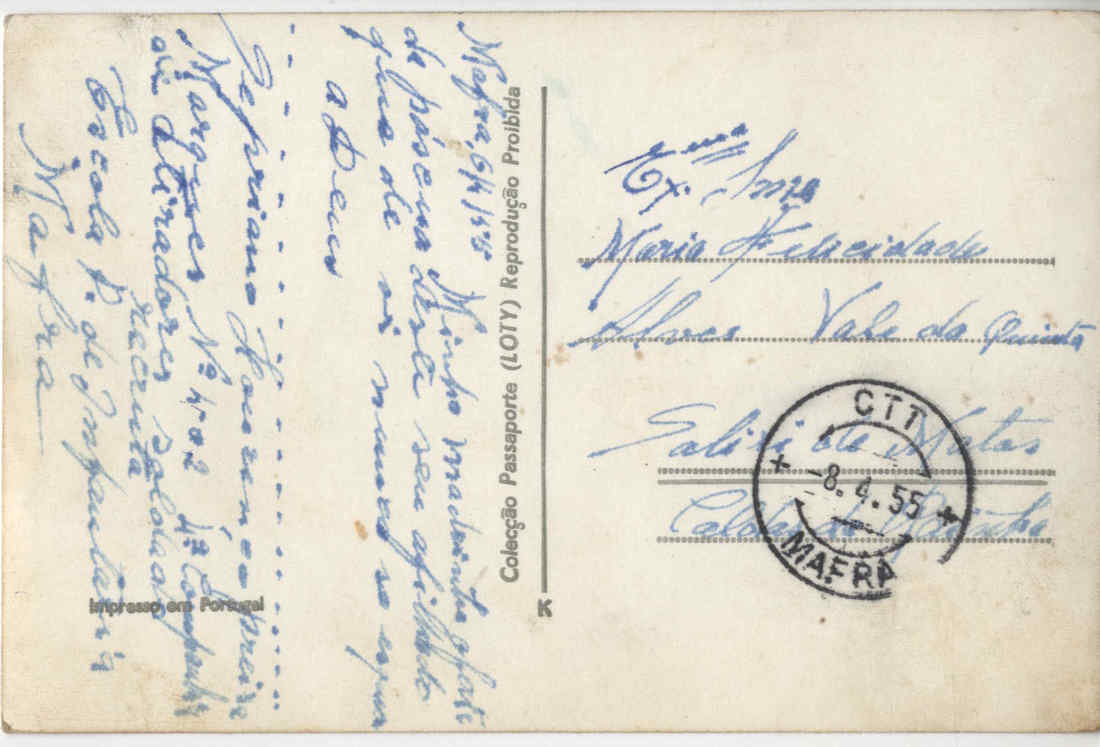 Mafra, 6/4/55 Minha madrinha
da páscoa desta seu afilhado
que de
a Deus
Sepriano Lourenço
Marques Nº 402 4ª Companhia
de Atiradores soldado
recruta
Escola P. de Infantaria
Mafra
Impresso em Portugal
Colecção Passaporte (LOTY) Reprodução Proibida
K
Exma Snra
Maria Felicidade
Alves Vale da Quinta
Salir de Matos
Caldas da Rainha
CTT
-8.4.55
MAFRA